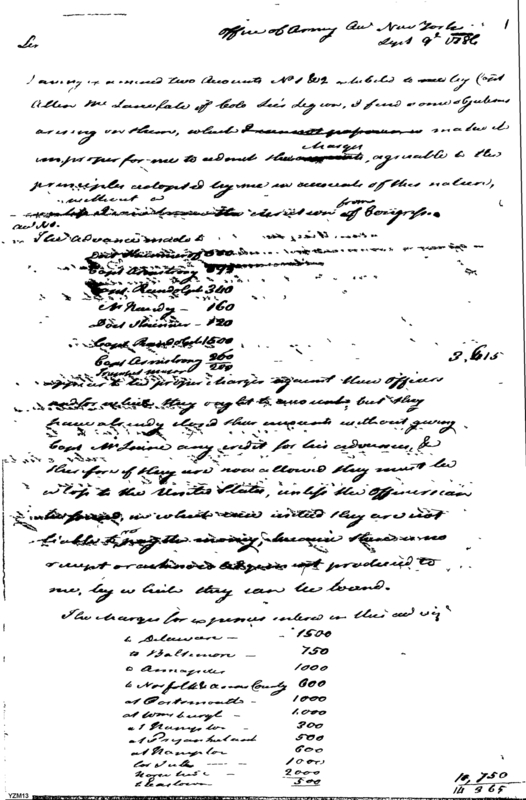 Office of Army Accts New York
Sept 9th 1786
1
Sir
Having examined two Accounts No 1 & 2 exhibited to me by Capt
Allen McLane late of Colo Lee's Legion, I find some objections
arising on them, which make it
improper for me to admit the charges, agreeable to the
principles adopted by me in accounts of this nature,
without a direction from of Congress.
The Advance made to
Capt Armstrong
Capt Rudolph 340
160
Doct Skinner 120
Capt Rudolph 1500
Capt Armstrong 260
200
3,615
appears to be proper charges against these Officers
and for which they ought to account, but they
have already closed their accounts without giving
Capt McLane any credit for his advances, &
therefore if they are now allowed they must be
a loss to the United States, unless the Officers can
be found, in which case indeed they are not
liable to pay the money, because there is no
receipt or produced to
me, by which they can be bound.
The charges for expences entered in this acct viz
to Delaware - 1500
to Baltimore - 750
to Annapolis 1000
to Norfolk & County 600
at Portsmouth - 1000
at Wmsburgh - 1.000
at Hampton - 300
at 500
at Hampton 600
for 1000
2000
500
10,750
14 365
YZM13